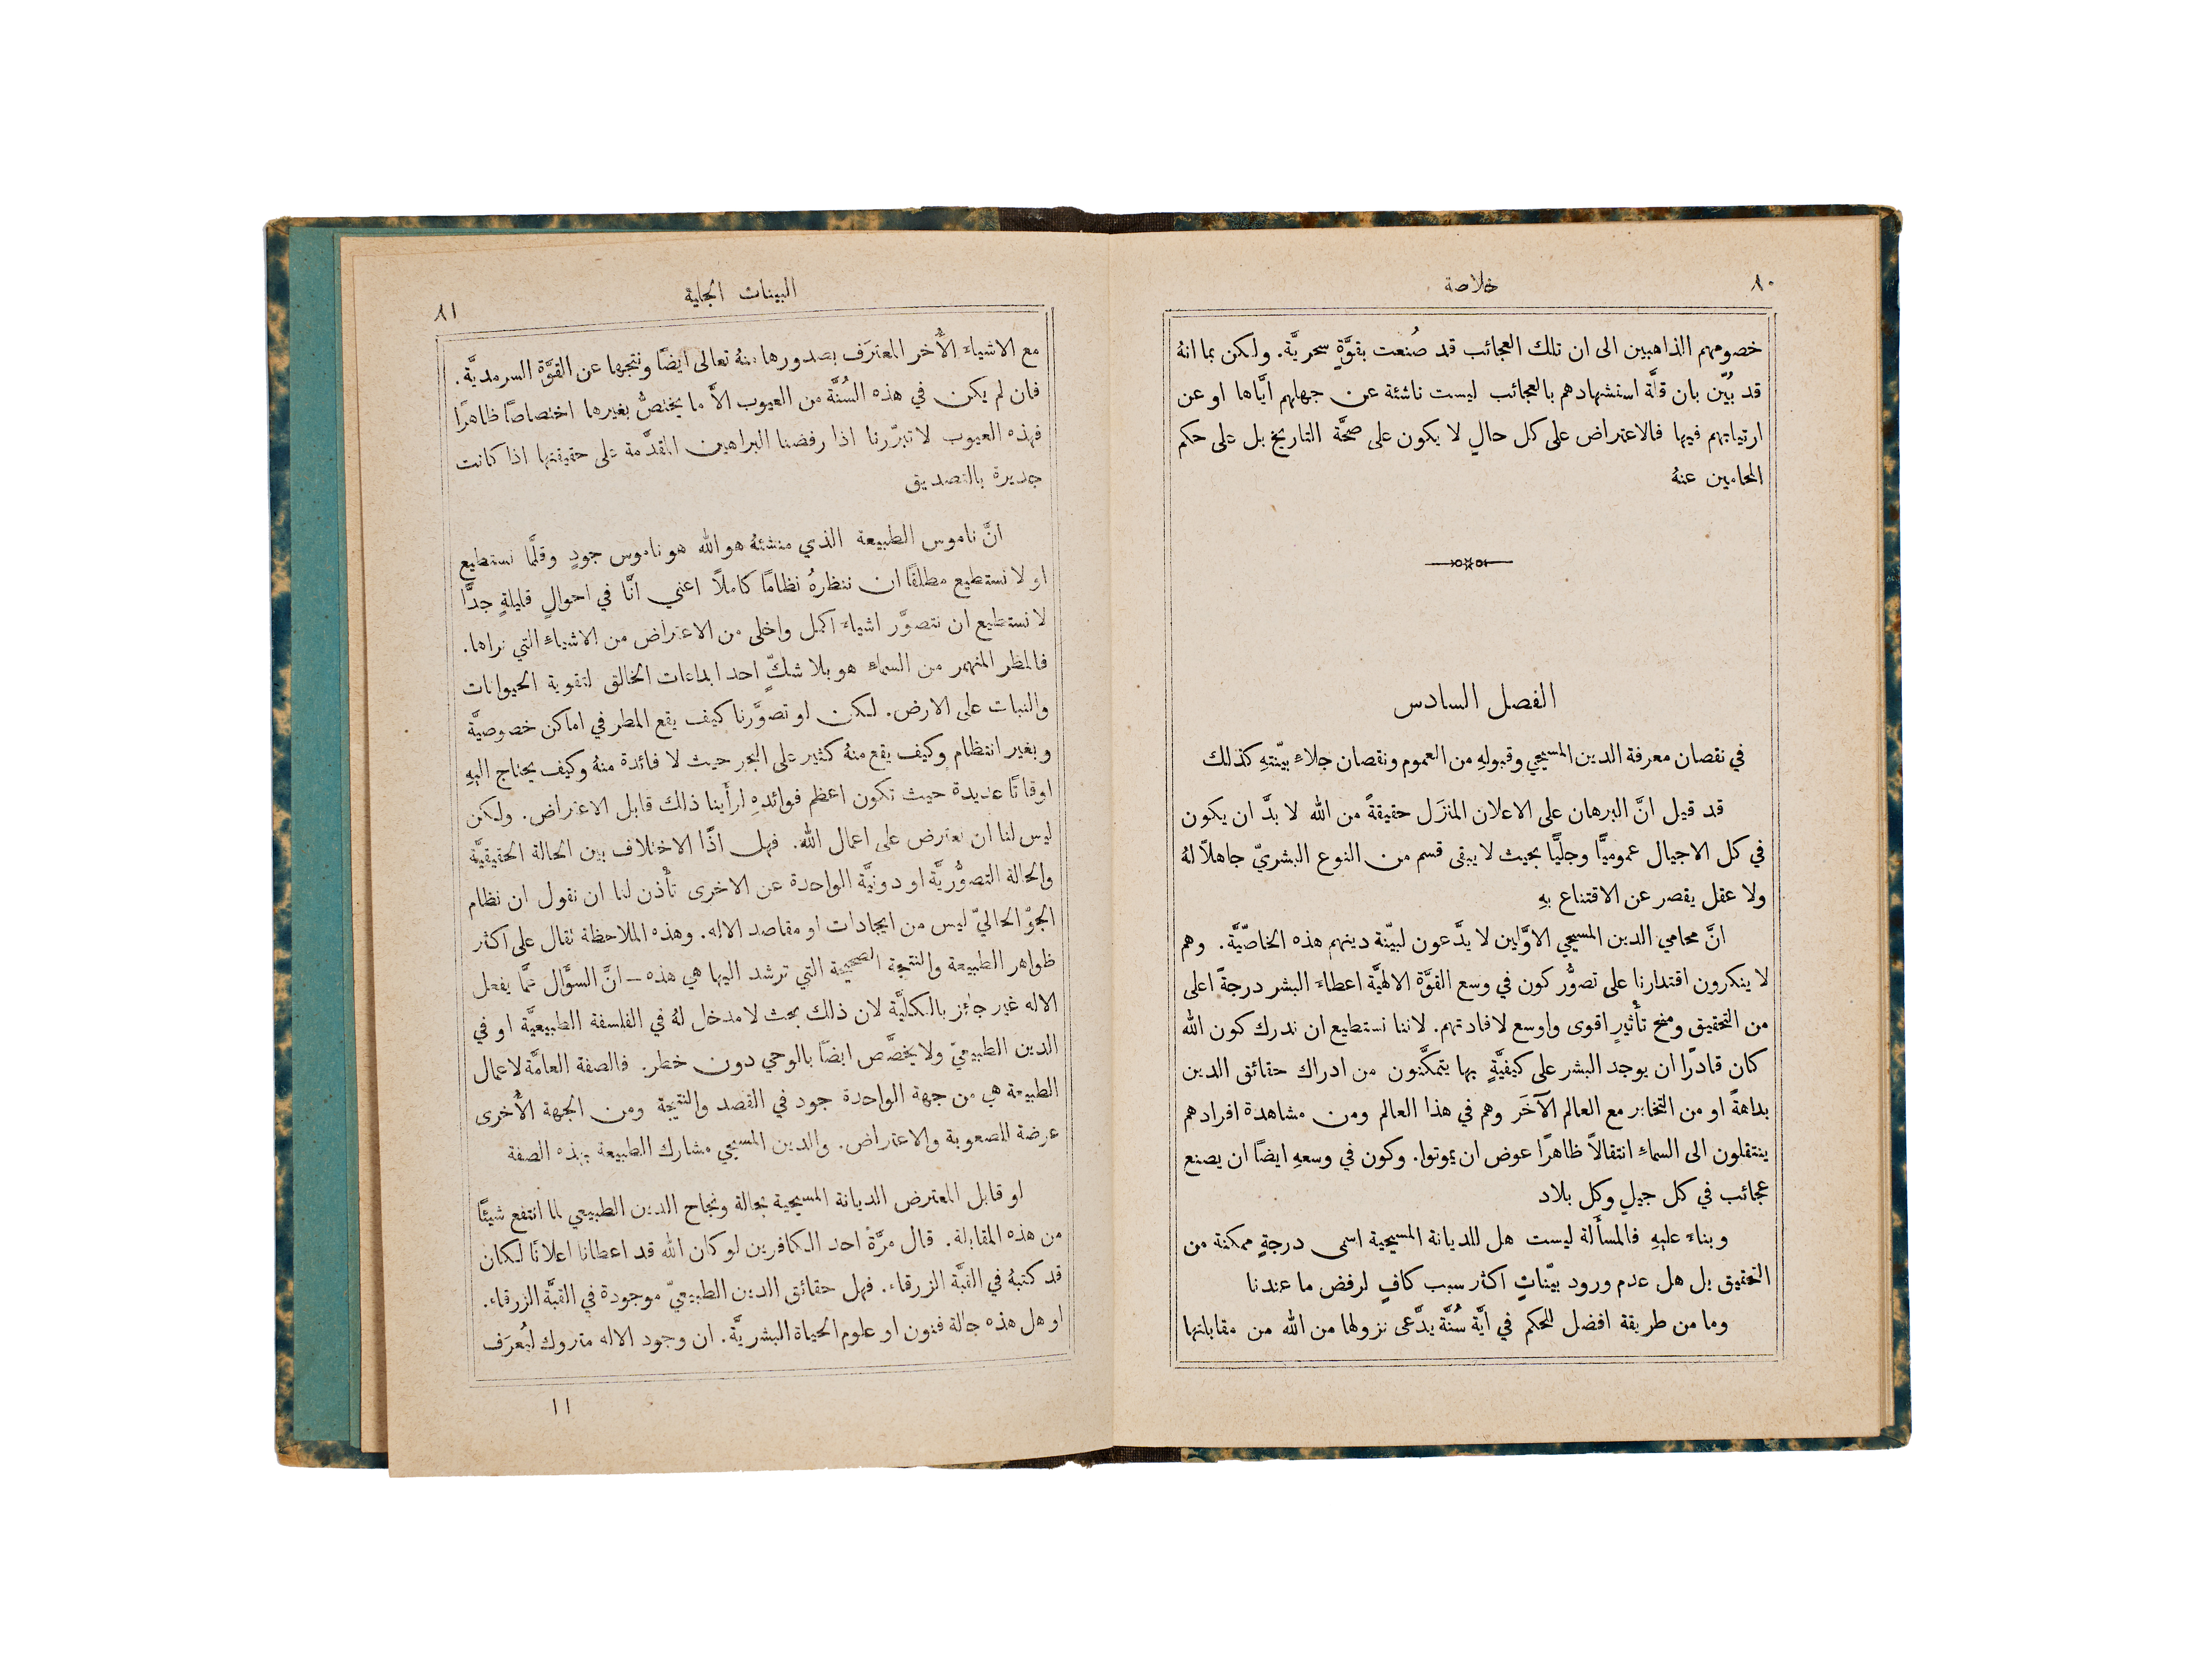 ٨٠
خلاصة
خصومهم الذاهبين الى ان تلك العجائب قد صُنعت بقوَّةٍ سحريَّة. ولكن بما انهُ
قد بُيّن بان قلَّة استشهادهم بالعجائب ليست ناشئة عن جهلهم ايَّاها او عن
ارتيابهم فيها فالاعتراض على كل حالٍ لا يكون على صحَّة التاريخ بل على حكم
المحامين عنهُ
الفصل السادس
في نقصان معرفة الدين المسيحي وقبولهِ من العموم ونقصان جلاءِ بيّنتهِ كذلك
قد قيل انَّ البرهان على الاعلان المنزَل حقيقةً من الله لا بدَّ ان يكون
في كل الاجيال عموميًّا وجليًّا بحيث لا يبقى قسم من النوع البشريّ جاهلاً لهُ
ولا عقل يقصر عن الاقتناع بهِ
انَّ محامي الدين المسيحي الاوَّلين لا يدَّعون لبيّنة دينهم هذه الخاصّيَّة. وهم
لا ينكرون اقتدارنا على تصوُّر كون في وسع القوَّة الالهيَّة اعطاء البشر درجةً اعلى
من التحقيق ومنح تأْثيرٍ اقوى واوسع لافادتهم. لاننا نستطيع ان ندرك كون الله
كان قادرًا ان يوجد البشر على كيفيَّةٍ بها يتمكَّنون من ادراك حقائق الدين
بداهةً او من التخابر مع العالم الآخَر وهم في هذا العالم ومن مشاهدة افرادهم
ينتقلون الى السماء انتقالاً ظاهرًا عوض ان يموتوا. وكون في وسعهِ ايضًا ان يصنع
عجائب في كل جيلٍ وكل بلاد
وبناء عليهِ فالمسأَلة ليست هل للديانة المسيحية اسمى درجةٍ ممكنة من
التحقيق بل هل عدم ورود بيّناتٍ اكثار سبب كافٍ لرفض ما عندنا
وما من طريقة افضل للحكم في ايَّة سُنَّة يدَّعى نزولها من الله من مقابلتها
البينات الجلية
٨١
مع الاشياء الأُخر المعترَف بصدورها منهُ تعالى ايضًا ونتجها عن القوَّة السرمديَّة.
فان لم يكن في هذه السُنَّة من العيوب الاَّ ما يختصُّ بغيرها اختصاصًا ظاهرًا
فهذه العيوب لا تبرّرنا اذا رفضنا البراهين المقدَّمة على حقيقتها اذا كانت
جديرة بالتصديق
انَّ ناموس الطبيعة الذي منشئهُ هو الله هو ناموس جودٍ وقلَّما نستطيع
او لا نستطيع مطلقًا ان ننظرهُ نظامًا كاملاً اعني انَّا في احوالٍ قليلةٍ جدًّا
لا نستطيع ان نتصوَّر اشياء اكمل واخلى من الاعتراض من الاشياء التي نراها.
فالمطر المنهمر من السماء هو بلا شكٍّ احد ابداءات الخالق لتقوية الحيوانات
والنبات على الارض. لكن لو تصوَّرنا كيف يقع المطر في اماكن خصوصيَّة
وبغير انتظام وكيف يقع منهُ كثير على البحر حيث لا فائدة منهُ وكيف يحتاج اليهِ
اوقاتًا عديدة حيث تكون اعظم فوائدهِ لرأَينا ذلك قابل الاعتراض. ولكن
ليس لنا ان نعترض على اعمال الله. فهل اذًا الاختلاف بين الحالة الحقيقيَّة
والحالة التصوُّريَّة او دونيَّة الواحدة عن الاخرى تأْذن لنا ان نقول ان نظام
الجوّ الحاليّ ليس من ايجادات او مقاصد الاله. وهذه الملاحظة تقال على اكثر
ظواهر الطبيعة والنتيجة الصحيحة التي ترشد اليها هي هذه – انَّ السؤَال عمَّا يفعل
الاله غير جائز بالكلّيَّة لان ذلك بحث لا مدخل لهُ في الفلسفة الطبيعيَّة او في
الدين الطبيعيّ ولا يخصَّص ايضًا بالوحي دون خطر. فالصفة العامَّة لاعمال
الطبيعة هي من جهة الواحدة جود في القصد والنتيجة ومن الجهة الأُخرى
عرضة للصعوبة والاعتراض. والدين المسيحي مشارك الطبيعة بهذه الصفة
لو قابل المعترض الديانة المسيحية بحالة ونجاح الدين الطبيعي لما انتفع شيئًا
من هذه المقابلة. قال مرَّة احد الكافرين لو كان الله قد اعطانا اعلانًا لكان
قد كتبهُ في القبَّة الزرقاء. فهل حقائق الدين الطبيعيّ موجودة في القبَّة الزرقاء.
او هل هذه حالة فنون او علوم الحياة البشريَّة. ان وجود الاله متروك ليُعرَف
١١